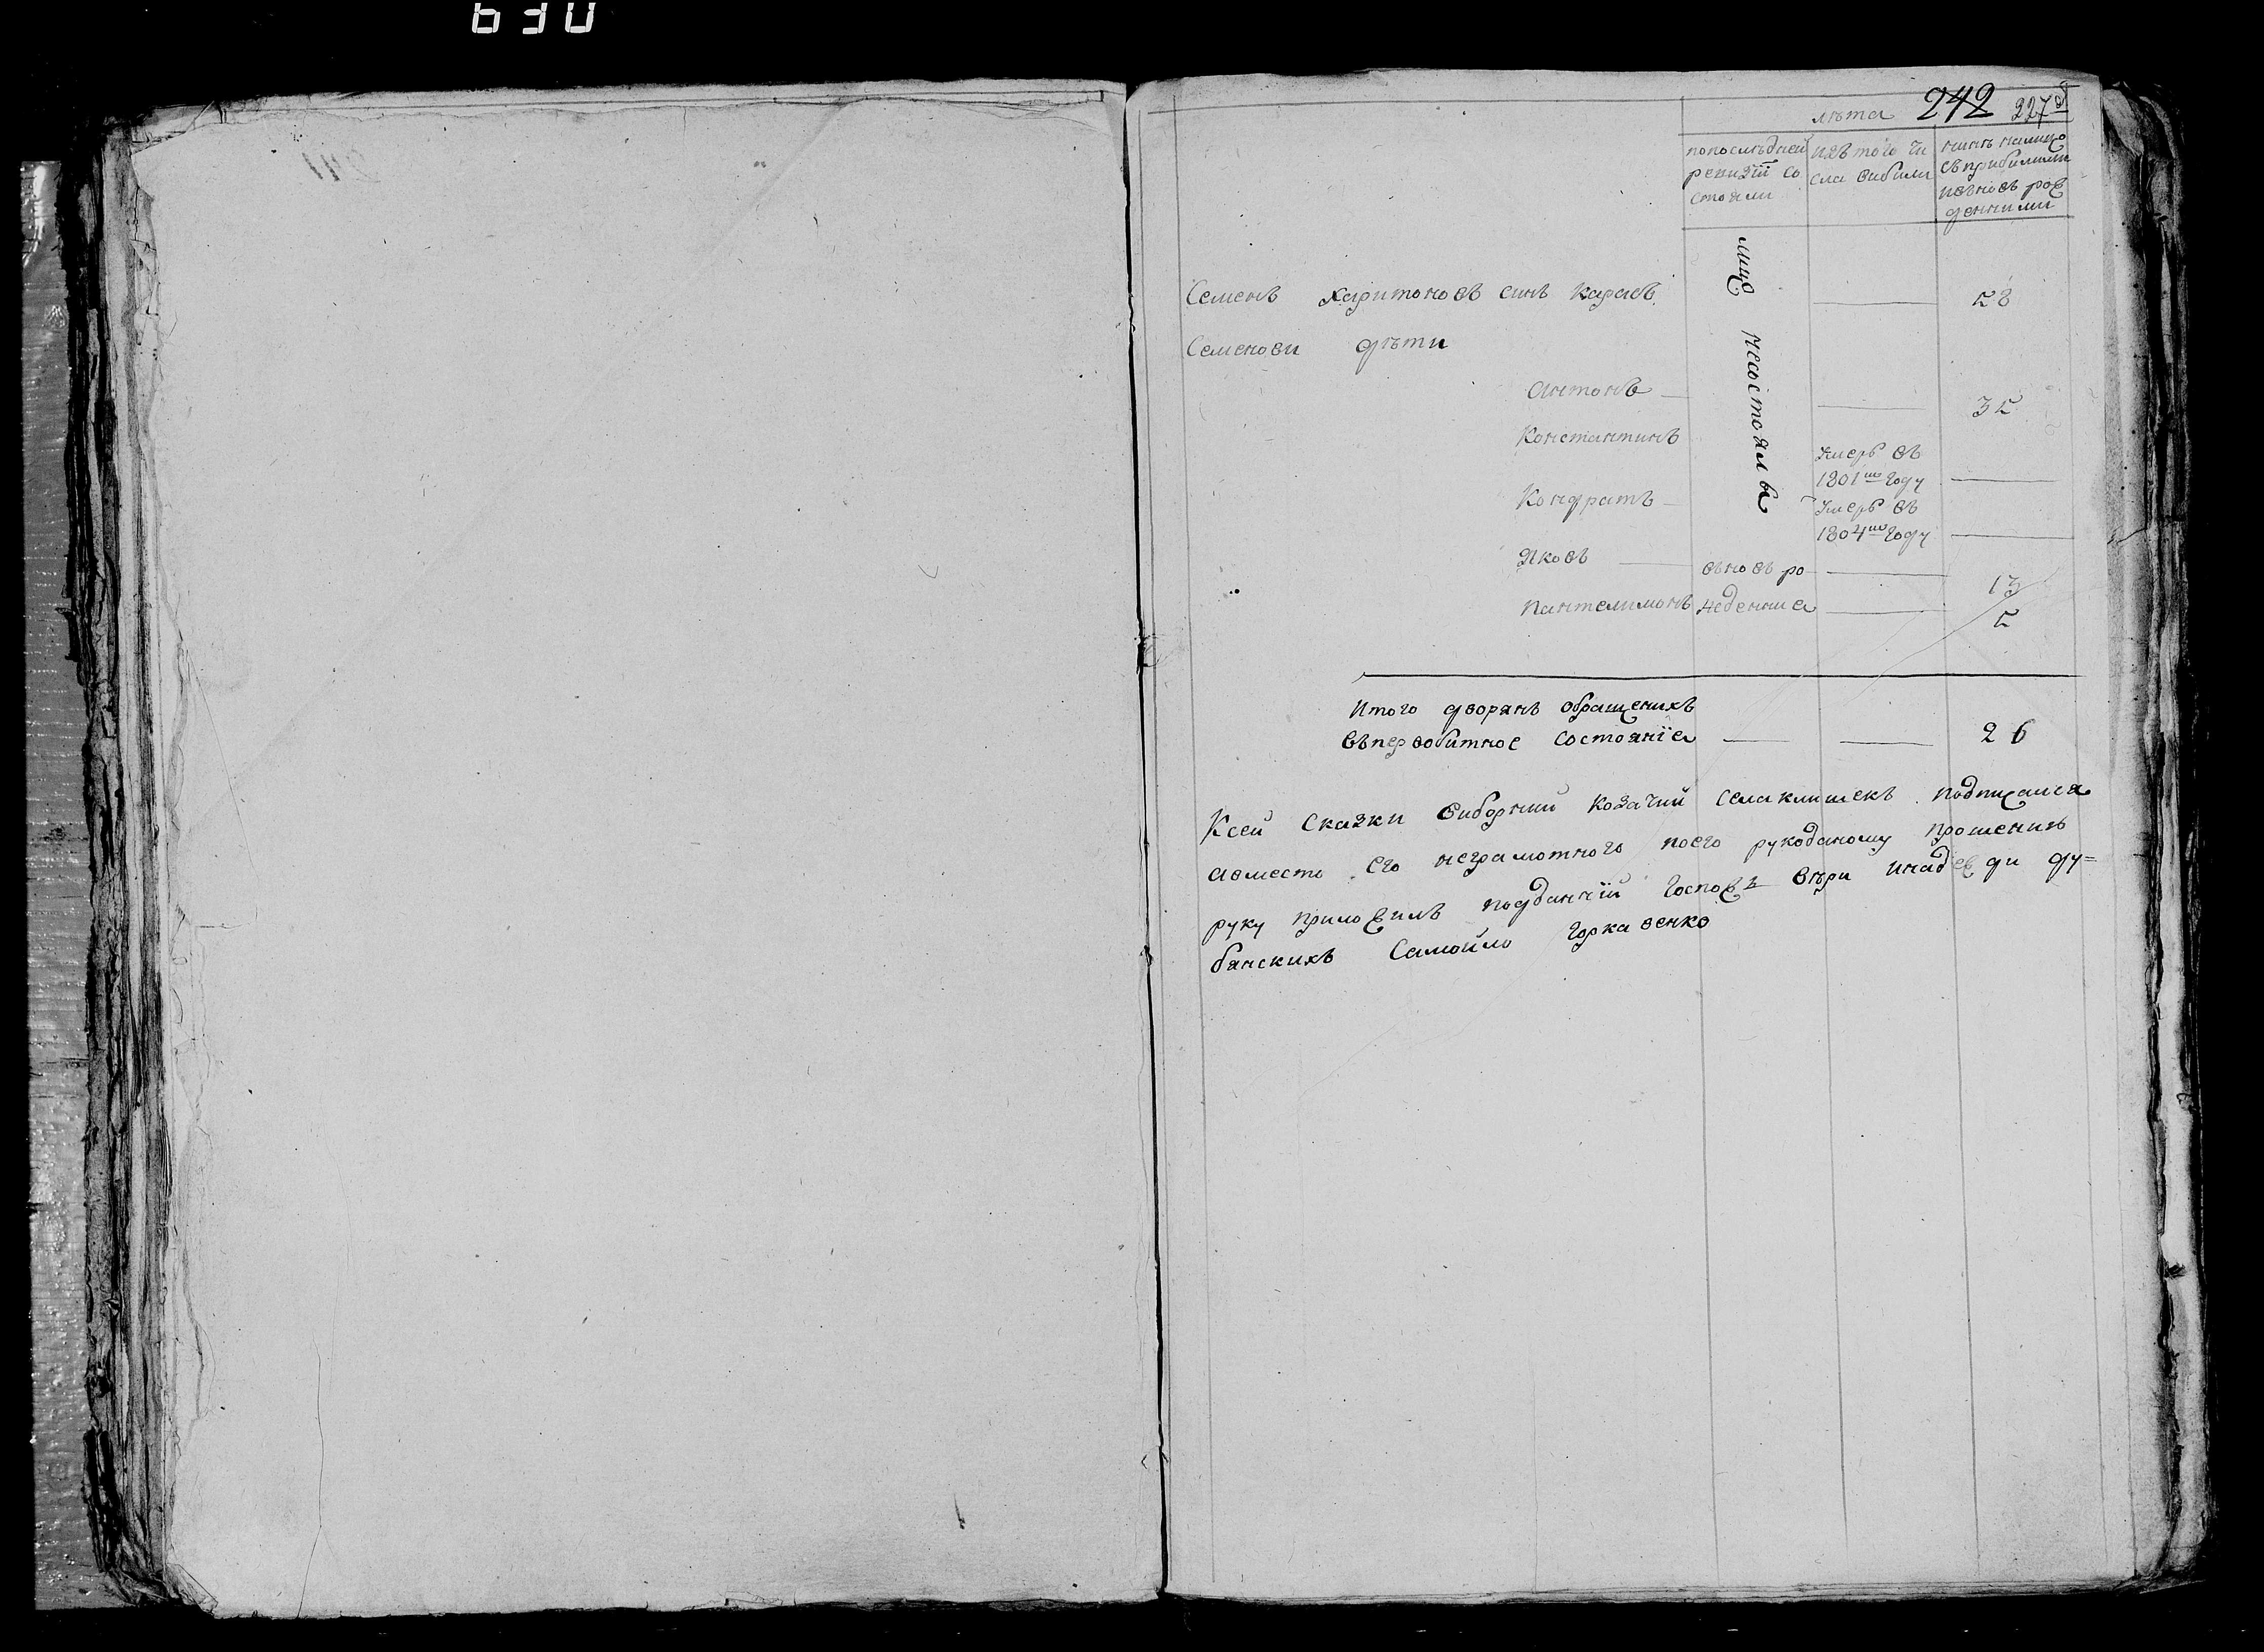 630
242 227
лѣта
попослѣдней ревизїи состояли
изъ того числа вибили
нинѣ налицо съприбилими ивновь рожденними
Семенъ Харитоновъ синъ Караевъ 58
Семенови дѣти
несостоялъ
Антонъ 35
Константинъ Умеръ въ 1801мъ году
Кондратъ Умеръ въ 1804мъ году
Яковъ вновь ро 13
Пантелимонъ жденние 5
Итого дворянъ обращенихъ
въпервобитное состоянїе 26
Ксей Сказки виборний козачий села клишекъ подписался
авместо его неграмотного поего рукоданому прошению
руку приложилъ подданнїй Госпожъ вѣри инадежди ду=
бянскихъ Самойло Горкавенко